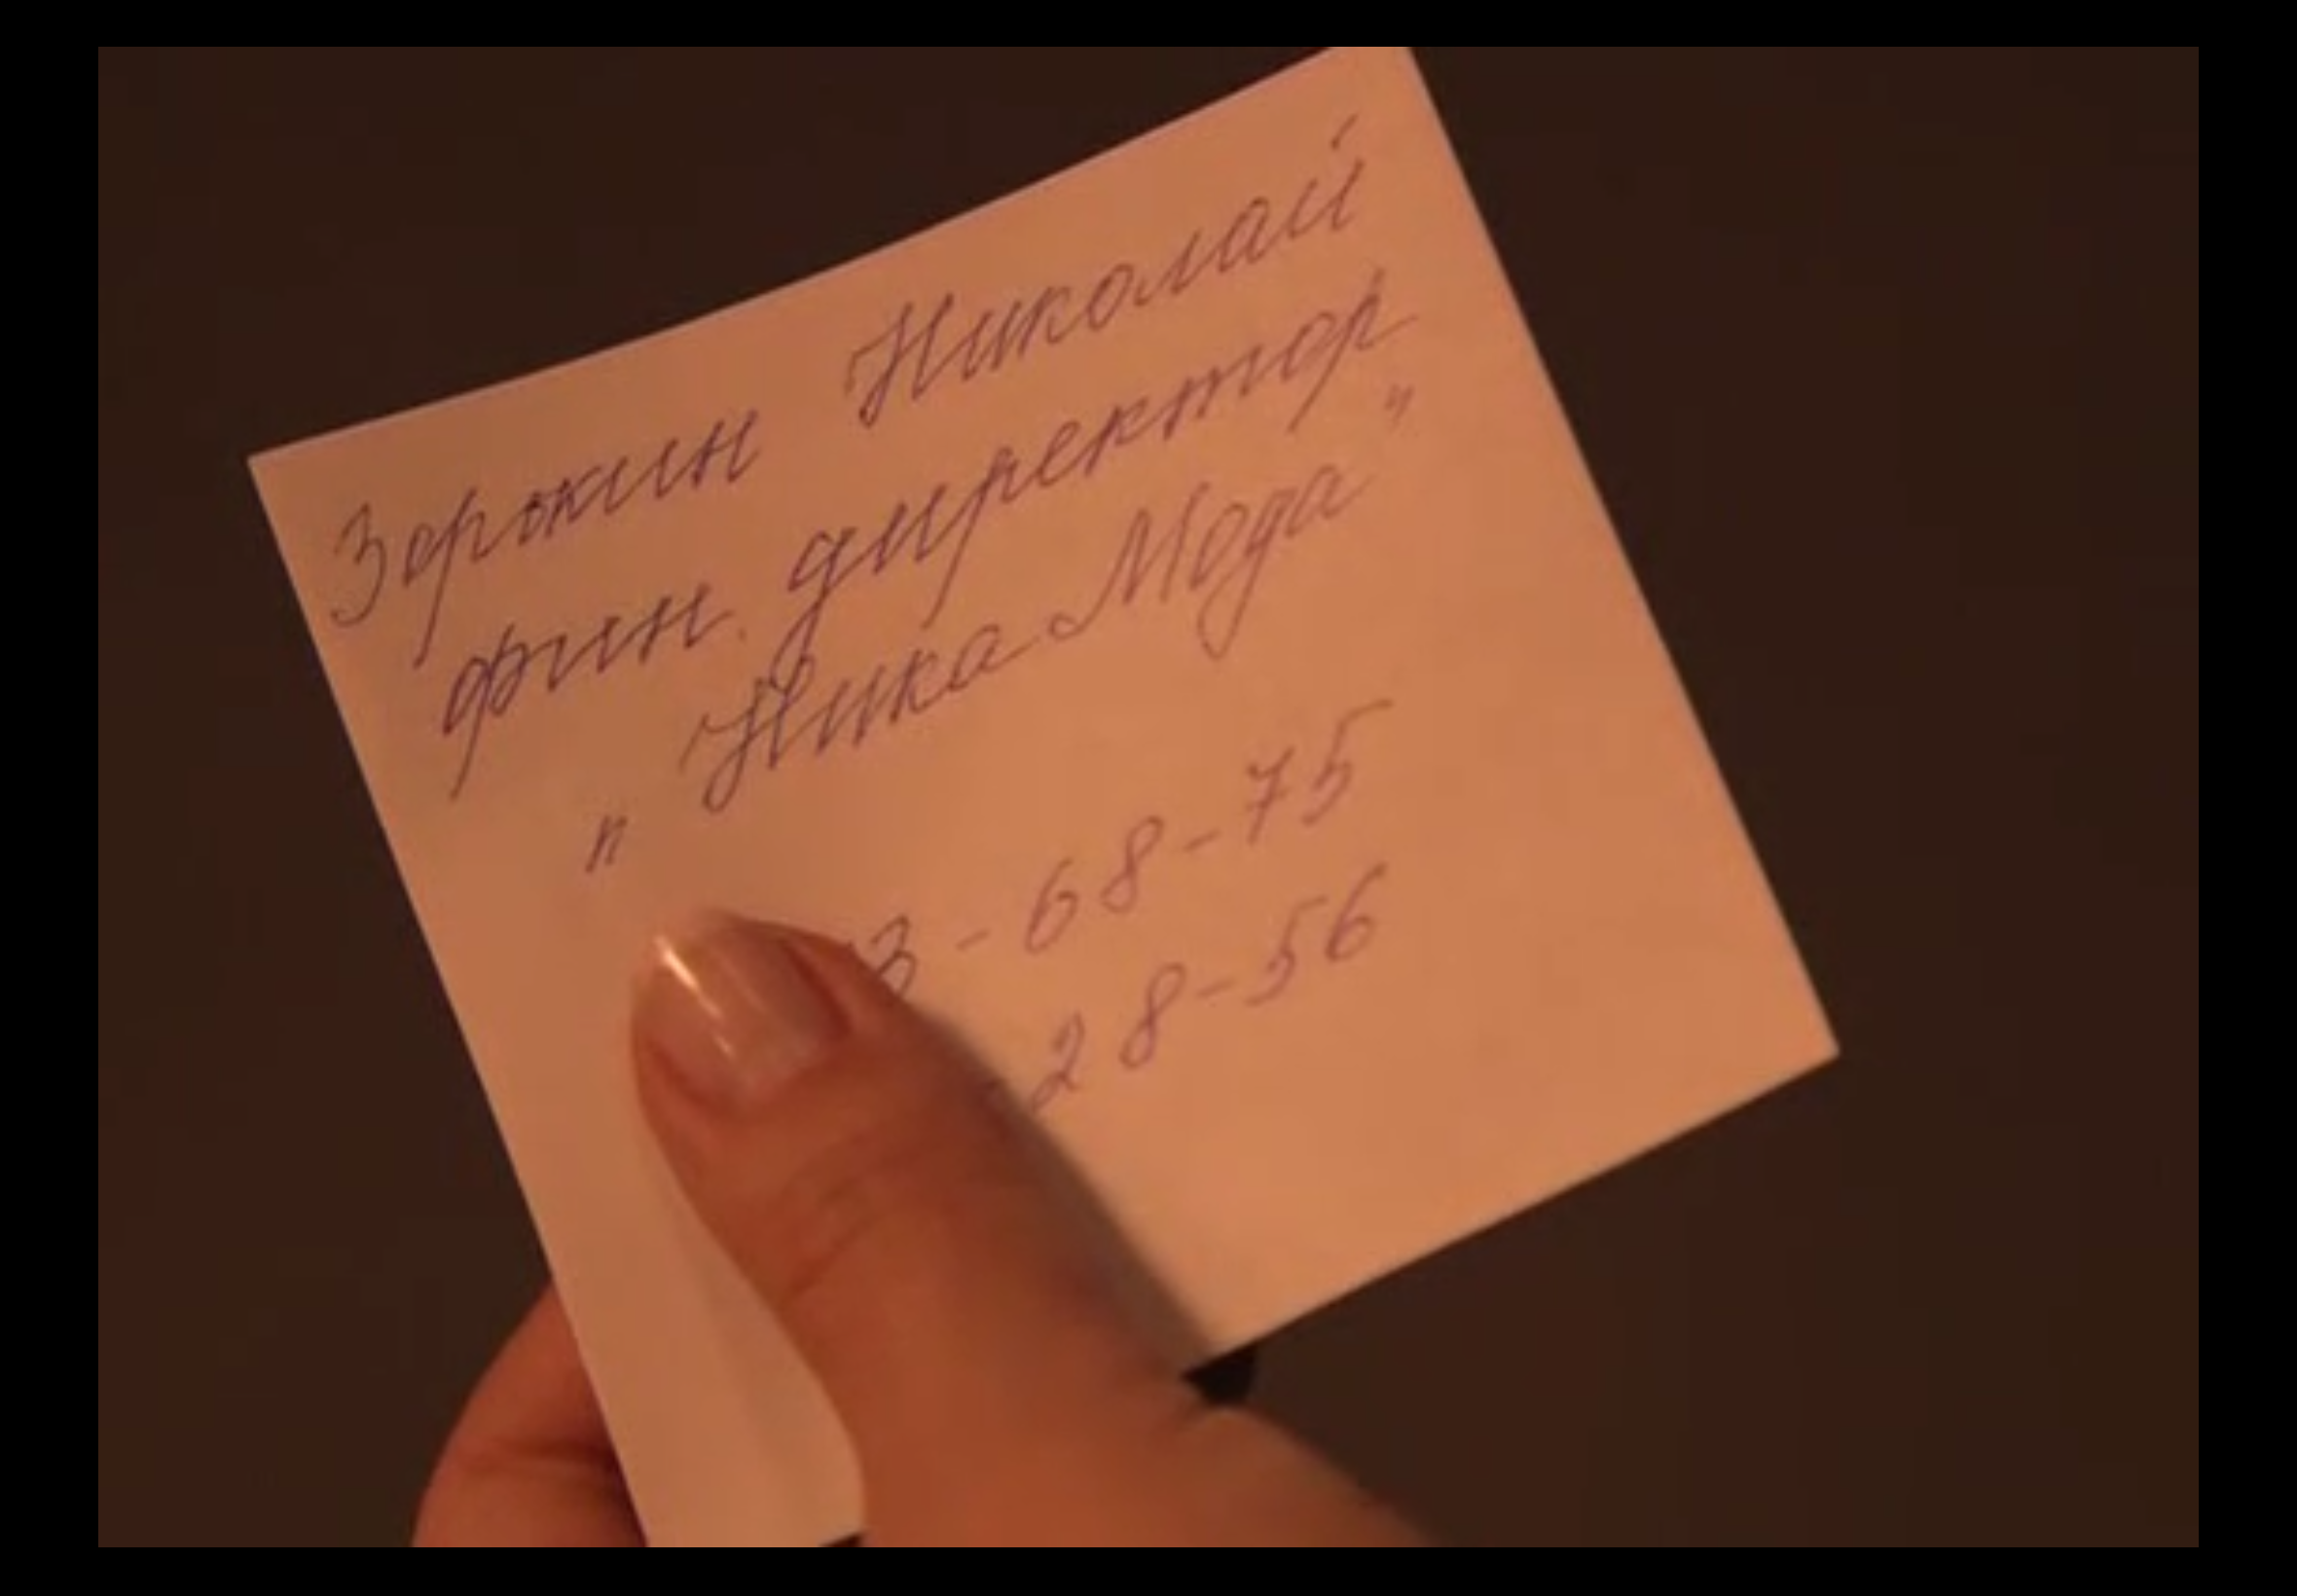 Зорькин Николай
фин. директор
"Ника Мода"
3-68-75
28-56